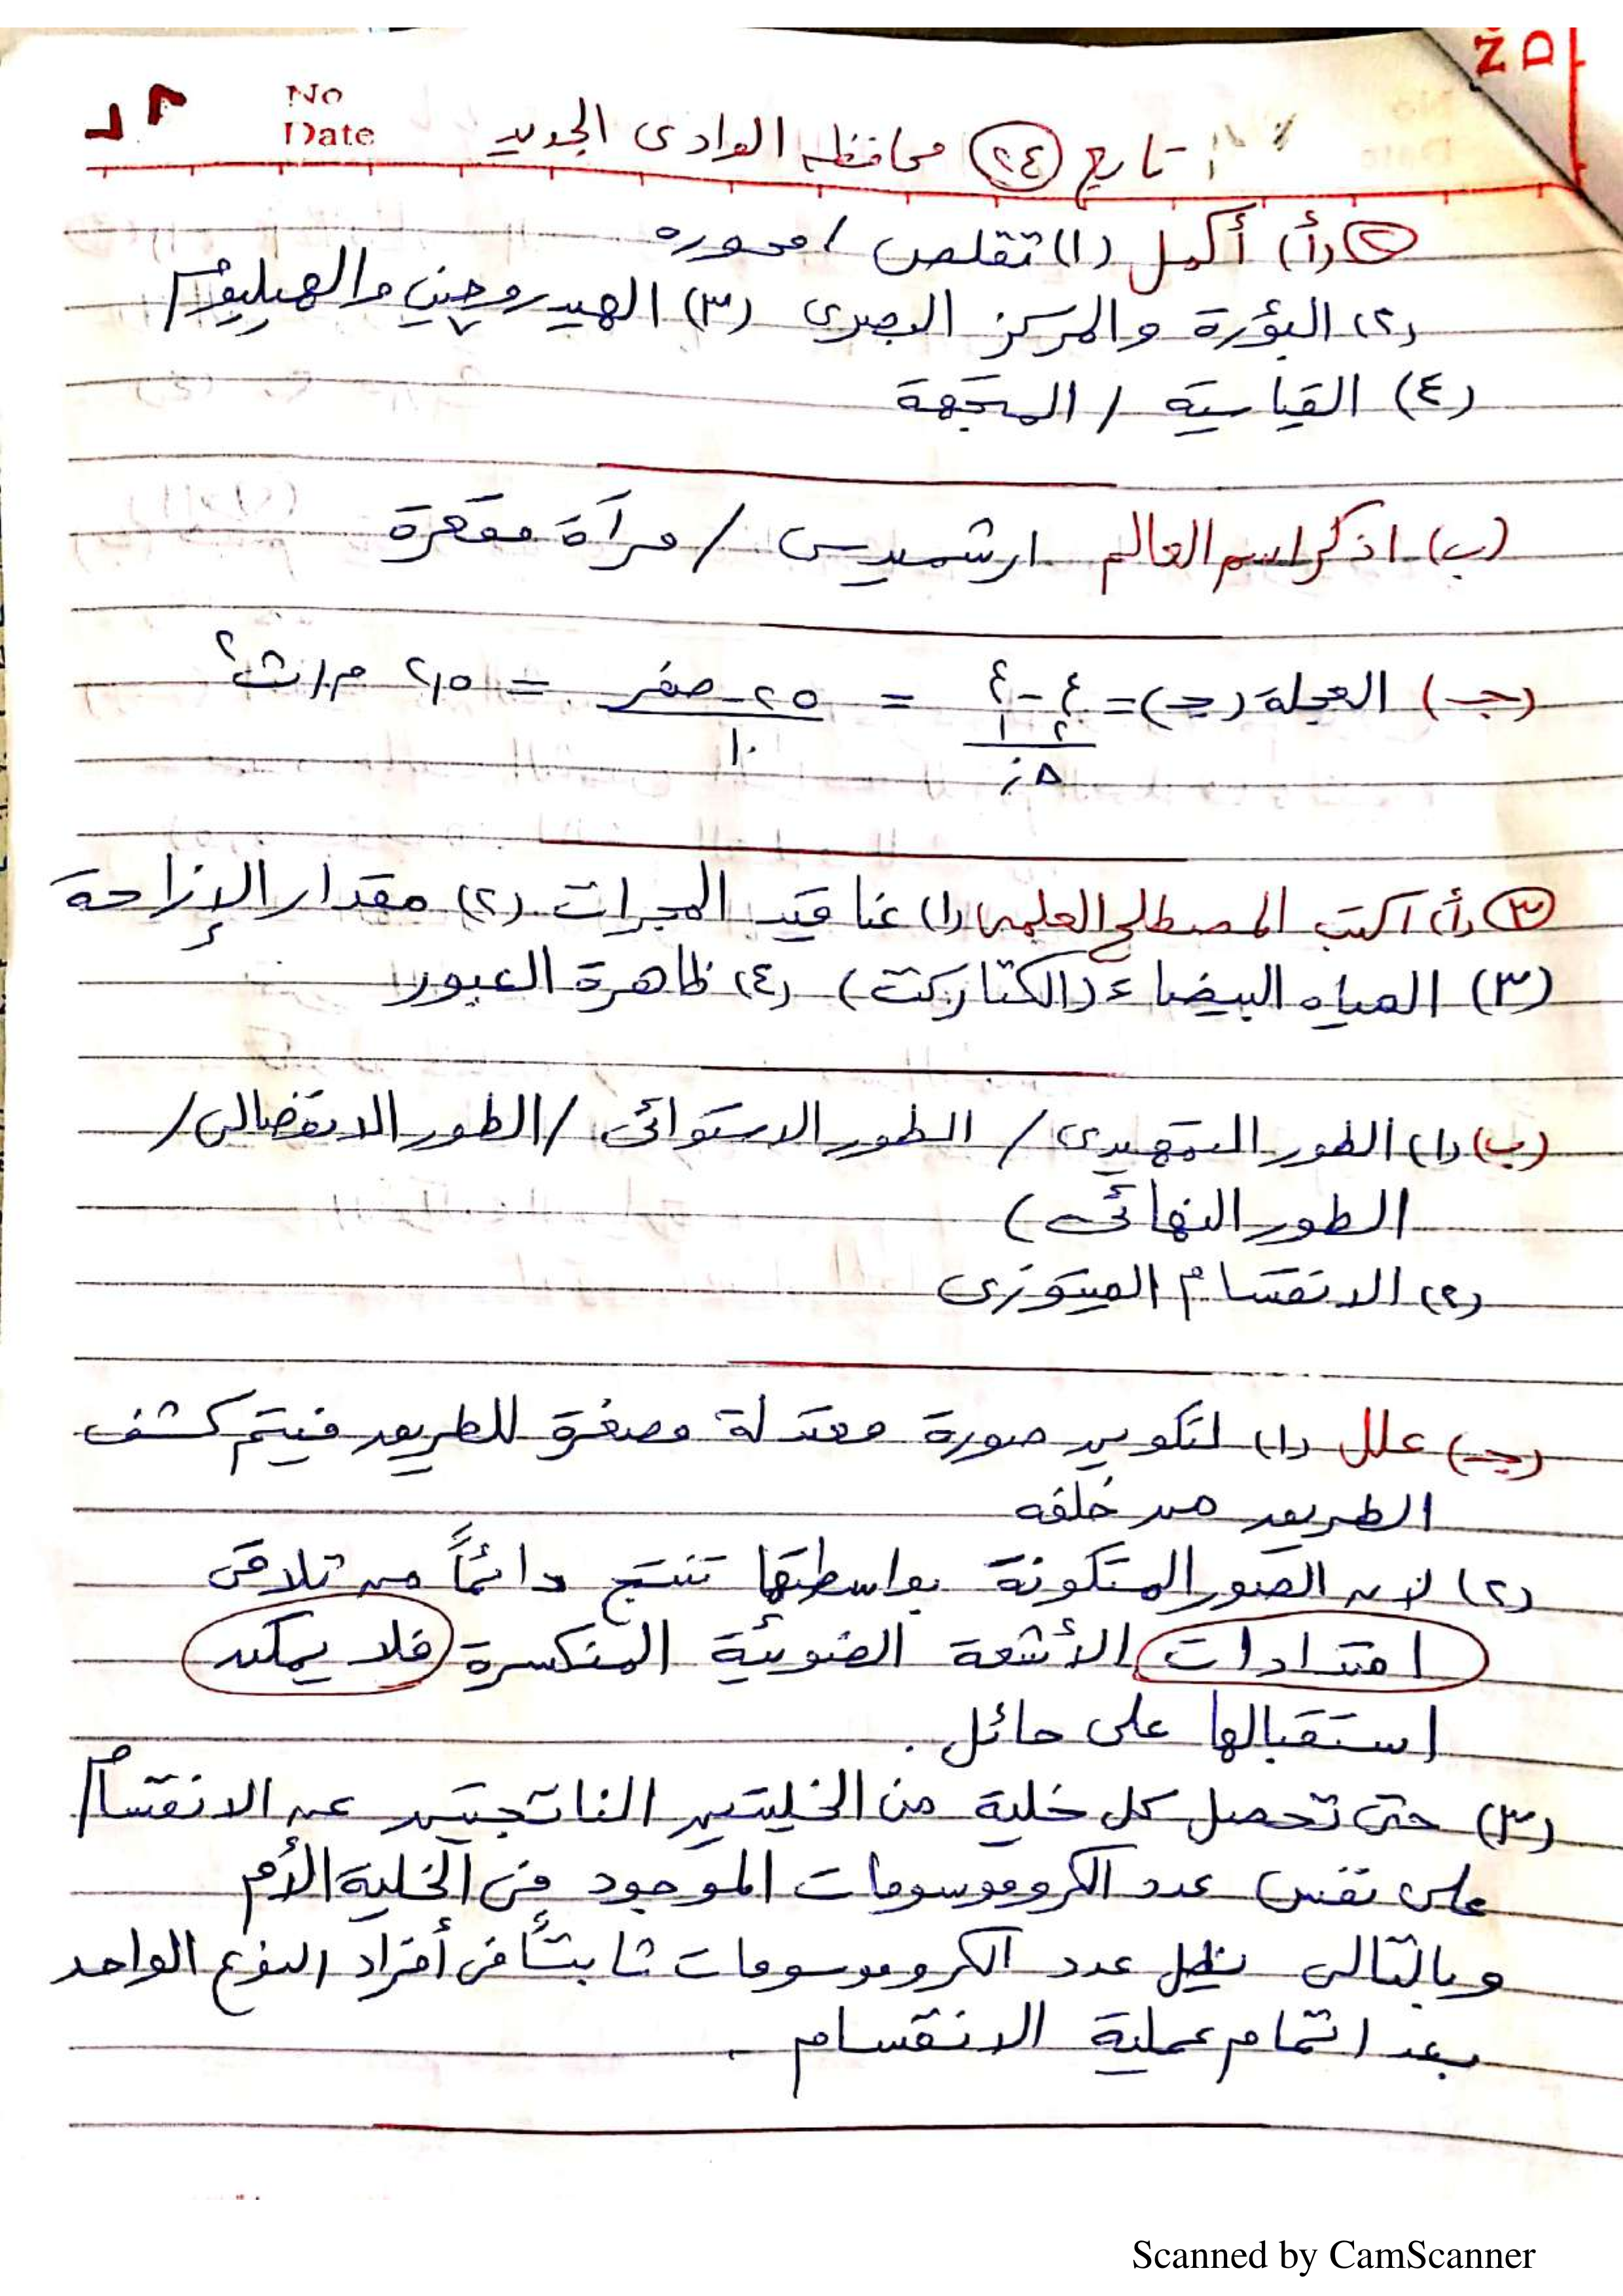 No
Date
تابع (٢٤) محافظة الوادى الجديد
(٢) (أ) أكمل (١) تقلص / محوره
(٢) البؤرة والمركز البصرى (٣) الهيدروجين والهيليوم
(٤) القياسية / المتجهة
(ب) اذكر اسم العالم ارشميدس / مرآة مقعرة
(جـ) العجلة (جـ) = ع٢ - ع١ / Δز = ٢٥ - صفر / ١٠ = ٢,٥ م/ث٢
(٣) (أ) اكتب المصطلح العلمى (١) عناقيد المجرات (٢) مقدار الإزاحة
(٣) المياه البيضاء (الكتاركت) (٤) ظاهرة العبور
(ب) (١) الطور التمهيدى / الطور الاستوائى / الطور الانفصالى /
الطور النهائى )
(٢) الانقسام الميتوزى
(جـ) علل (١) لتكوين صورة معتدلة مصغرة للطريق فيتم كشف
الطريق من خلفه
(٢) لأن الصور المتكونة بواسطتها تنتج دائماً من تلاقى
امتدادات الأشعة الضوئية المنكسرة فلا يمكن
استقبالها على حائل .
(٣) حتى تحصل كل خلية من الخليتين الناتجتين عن الانقسام
على نفس عدد الكروموسومات الموجود فى الخلية الأم
وبالتالى يظل عدد الكروموسومات ثابتاً فى أفراد النوع الواحد
بعد اتمام عملية الانقسام .
Scanned by CamScanner